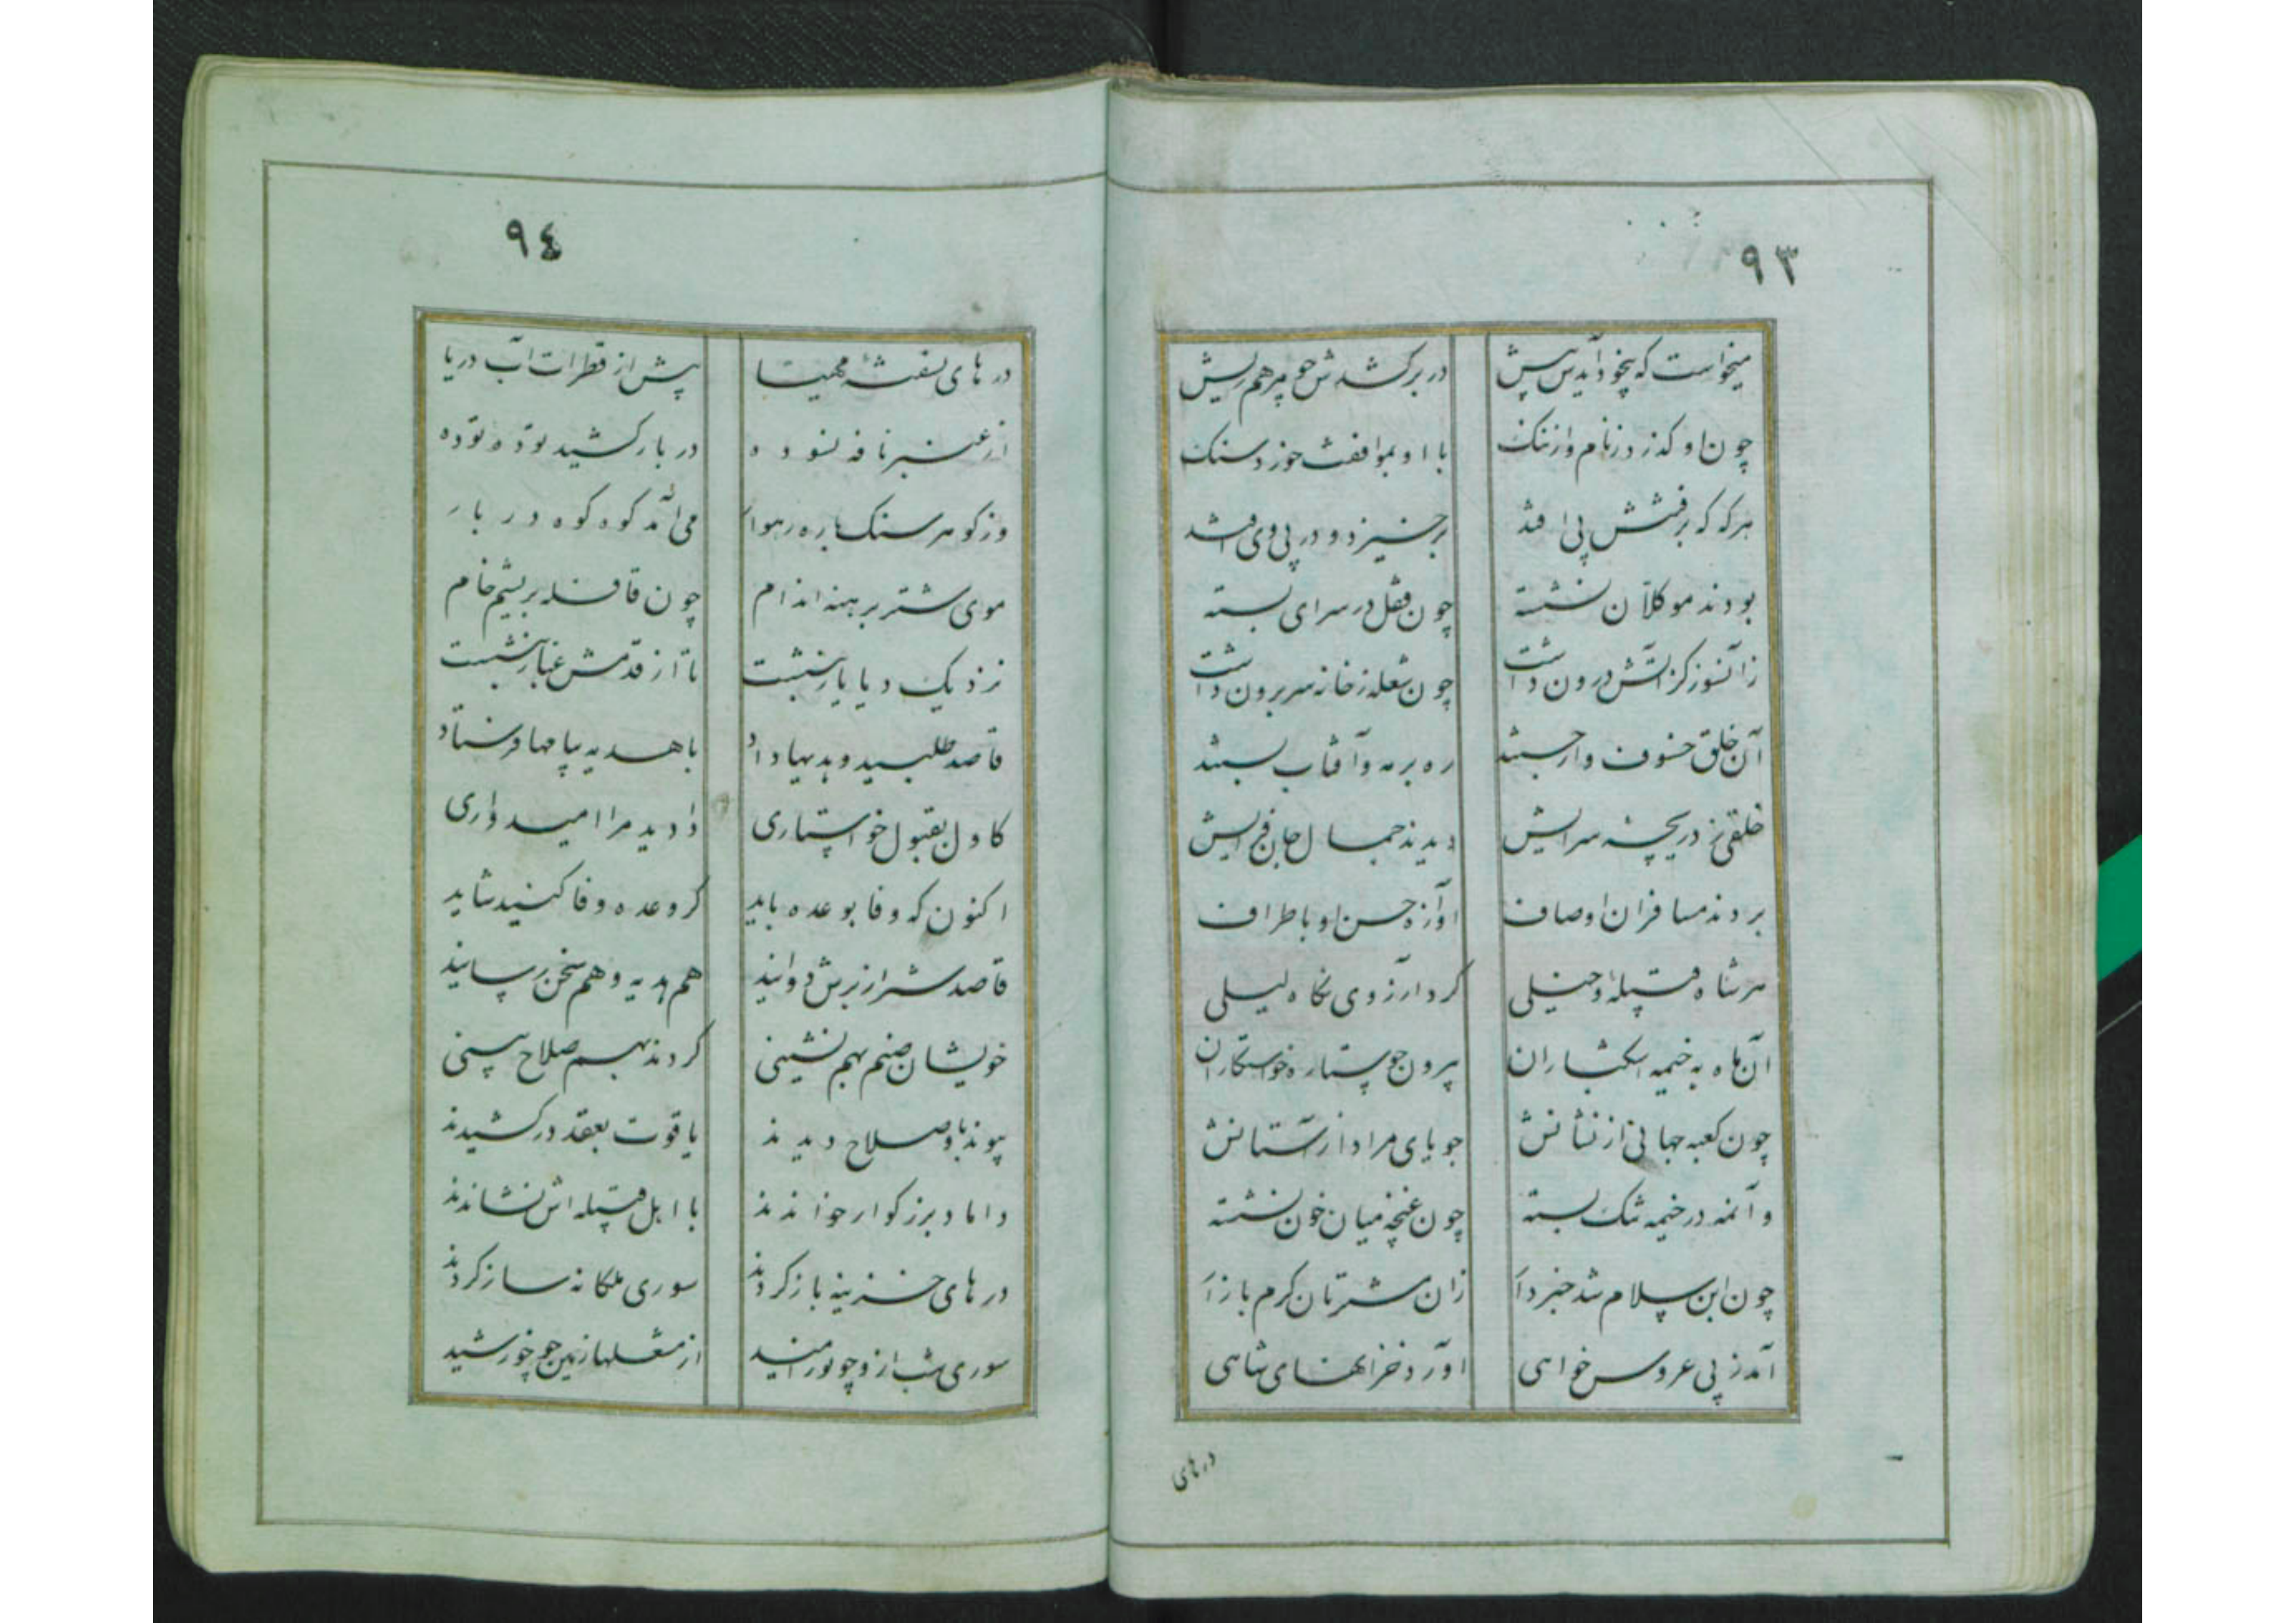 ٩٣
میخواست که بیخود آیدش پیش در بر کشدش چو مرهم ریش
چون او کذرد ز نام و از ننک با او بموافقت خورد سنک
هر که که برفتنش پی افتد برخیزد و در پی وی افتد
بودند موکلان نشسته چون قفل در سرای بسته
زانسوز کز آتش درون داشت چون شعله ز خانه سر برون داشت
آن خلق خسوف وار جستند ره بر مه و آفتاب بستند
خلقی ز دریچه سرایش دیدند جمال جان فزایش
بردند مسافران اوصاف آوازه حسن او باطراف
هر شاه قبیله و خیلی کرد آرزوی نکاه لیلی
آن ماه به خیمه اشکباران بیرون چو ستاره خواستکاران
چون کعبه جهانی از نشانش جویای مراد از آستانش
و آنمه در خیمه تنک بسته چون غنچه میان خون نشسته
چون ابن سلام شد خبردار زان مشتریان کرم بازار
آمد ز پی عروس خواهی آورد خزانهای شاهی
در های
٩٤
در های نسفته مهیا پیش از قطرات آب دریا
از عنبر نافه نسوده در بار کشید توده توده
وز کوهر سنک باره رهوار می آمد کوه کوه در بار
موی شتر برهنه اندام چون قافله بریشم خام
نزدیک دیار یار بنشست تا از قدمش غبار بنشست
قاصد طلبید و هدیها داد با هدیه پیامها فرستاد
کاول بقبول خواستاری دادید مرا امیدواری
اکنون که وفا بوعده باید کر وعده وفا کنید شاید
قاصد شتر از برش دوانید هم هدیه و هم سخن رسانید
خویشان صنم بهم نشینی کردند بهم صلاح بینی
پیوند باو صلاح دیدند یاقوت بعقد در کشیدند
داماد بزرکوار خواندند با اهل قبیله اش نشاندند
در های خزینه باز کردند سوری ملکانه ساز کردند
سوری شب ازو چو نور امید از مشعلها زمین چو خورشید